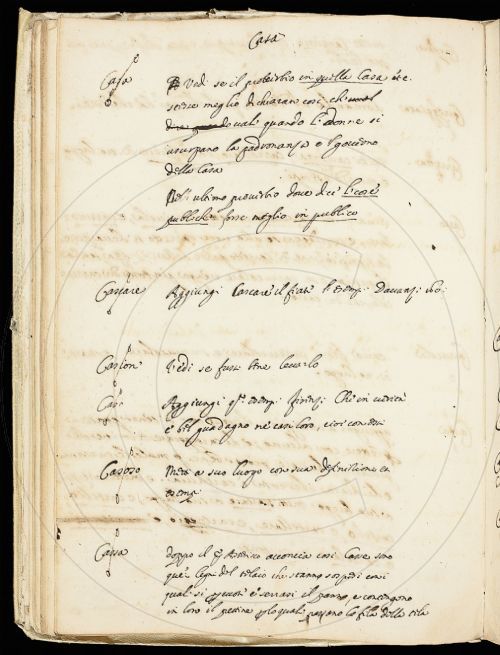 Casa
Casa Vedi se il proverbio in quella Casa è e
stesse meglio dichiarar così, che vuol
dire quando le donne si
usurpano la padronanza e 'l governo
della Casa
Nell'ultimo proverbio dove dice le cose
publiche forse meglio in publico
Cascare Aggiungi Cascare il fiato l'esempi Davanzi
Vedi se fusse bene levarlo
Caso Aggiungi esempi Firenz. Che in verità
è bel guadagno ne casi loro, cioè
Casoso Metti a suo luogo con sua definitione et
esempi
Cassa doppo il § acconcia così Casse sono
quei legni del telaio che stanno sospesi coi
quali si percuote e serrasi il panno, e contengono
in loro il pettine per lo quale passano le fila della tela